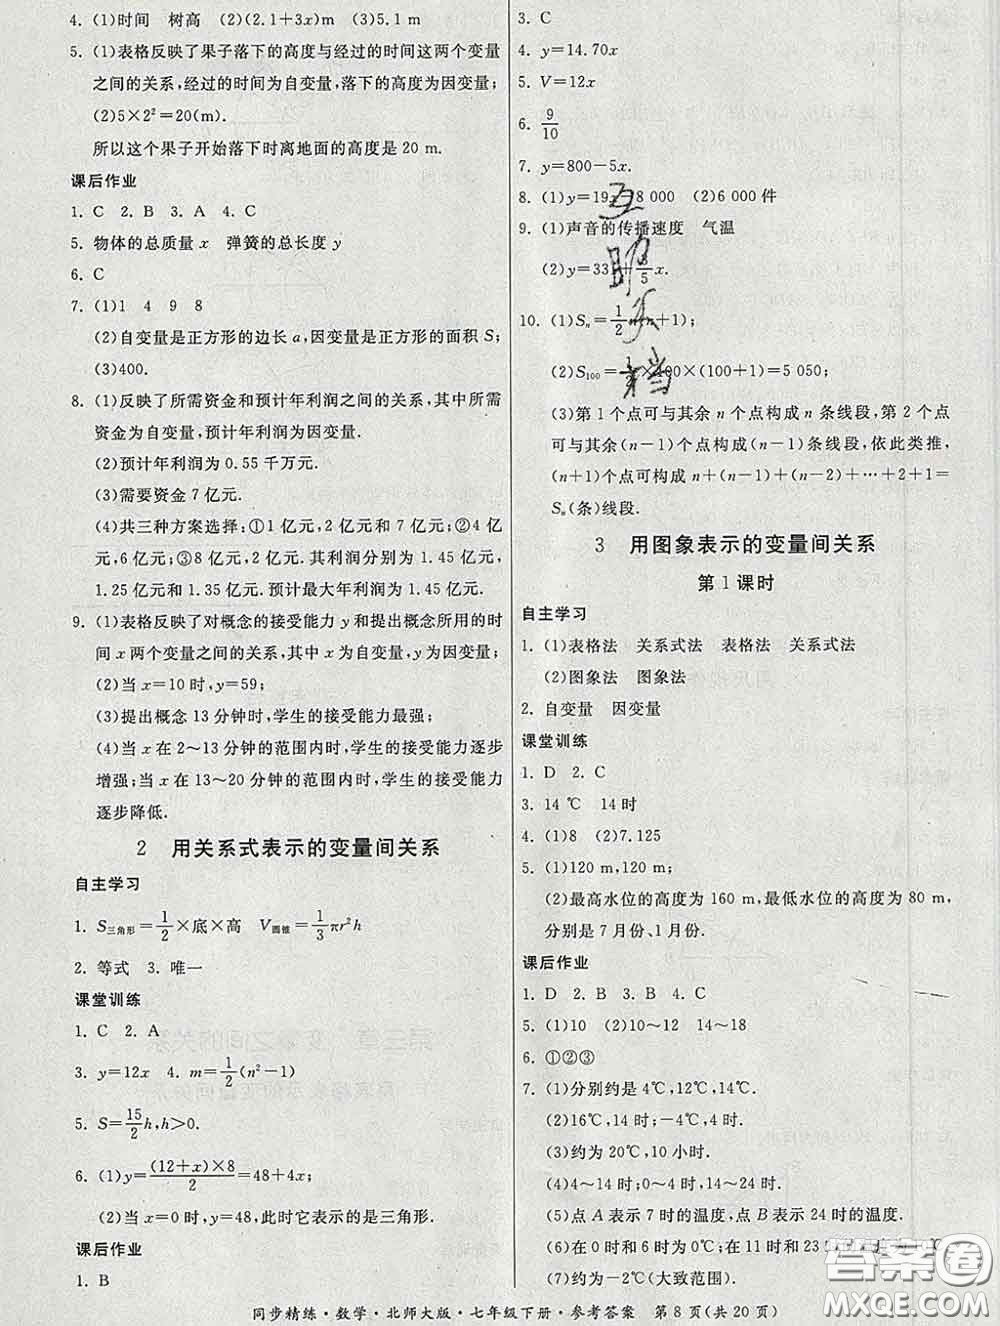 4. (1)时间　树高　(2)(2.1+3x)m　(3)5.1 m
5. (1)表格反映了果子落下的高度与经过的时间这两个变量
之间的关系,经过的时间为自变量,落下的高度为因变量.
(2)5×2²=20(m).
所以这个果子开始落下时离地面的高度是 20 m.
课后作业
1. C　2. B　3. A　4. C
5. 物体的总质量 x　弹簧的总长度 y
6. C
7. (1)1　4　9　8
(2)自变量是正方形的边长 a,因变量是正方形的面积 S;
(3)400.
8. (1)反映了所需资金和预计年利润之间的关系,其中所需
资金为自变量,预计年利润为因变量.
(2)预计年利润为 0.55 千万元.
(3)需要资金 7 亿元.
(4)共三种方案选择:①1 亿元,2 亿元和 7 亿元;②4 亿
元,6 亿元;③8 亿元,2 亿元.其利润分别为 1.45 亿元,
1.25 亿元和 1.35 亿元.预计最大年利润为 1.45 亿元.
9. (1)表格反映了对概念的接受能力 y 和提出概念所用的时
间 x 两个变量之间的关系,其中 x 为自变量,y 为因变量;
(2)当 x=10 时,y=59;
(3)提出概念 13 分钟时,学生的接受能力最强;
(4)当 x 在 2~13 分钟的范围内时,学生的接受能力逐步
增强;当 x 在 13~20 分钟的范围内时,学生的接受能力
逐步降低.
2　用关系式表示的变量间关系
自主学习
1. S三角形=1/2×底×高　V圆锥=1/3πr²h
2. 等式　3. 唯一
课堂训练
1. C　2. A
3. y=12x　4. m=1/2(n²−1)
5. S=15/2h,h>0.
6. (1)y=(12+x)×8/2=48+4x;
(2)当 x=0 时,y=48,此时它表示的是三角形.
课后作业
1. B
3. C
4. y=14.70x
5. V=12x
6. 9/10
7. y=800−5x.
8. (1)y=19x 8 000　(2)6 000 件
9. (1)声音的传播速度　气温
(2)y=331+3/5x.
10. (1)Sₙ=1/2 n(n+1);
(2)S₁₀₀=1/2×100×(100+1)=5 050;
(3)第 1 个点可与其余 n 个点构成 n 条线段,第 2 个点
可与其余(n−1)个点构成(n−1)条线段,依此类推,
(n+1)个点可构成 n+(n−1)+(n−2)+…+2+1=
Sₙ(条)线段.
3　用图象表示的变量间关系
第 1 课时
自主学习
1. (1)表格法　关系式法　表格法　关系式法
(2)图象法　图象法
2. 自变量　因变量
课堂训练
1. D　2. C
3. 14 ℃　14 时
4. (1)8　(2)7.125
5. (1)120 m,120 m;
(2)最高水位的高度为 160 m,最低水位的高度为 80 m,
分别是 7 月份、1 月份.
课后作业
1. D　2. B　3. B　4. C
5. (1)10　(2)10~12　14~18
6. ①②③
7. (1)分别约是 4℃,12℃,14℃.
(2)16℃,14 时;−4℃,4 时.
(3)约为 20℃,10 小时.
(4)4~14 时;0~4 时,14~24 时.
(5)点 A 表示 7 时的温度,点 B 表示 24 时的温度.
(6)在 0 时和 6 时为 0℃;在 11 时和 23
(7)约为−2℃(大致范围).
同步精练·数学·北师大版·七年级下册·参考答案　第 8 页(共 20 页)
互助文档
答案圈
MXQE.COM